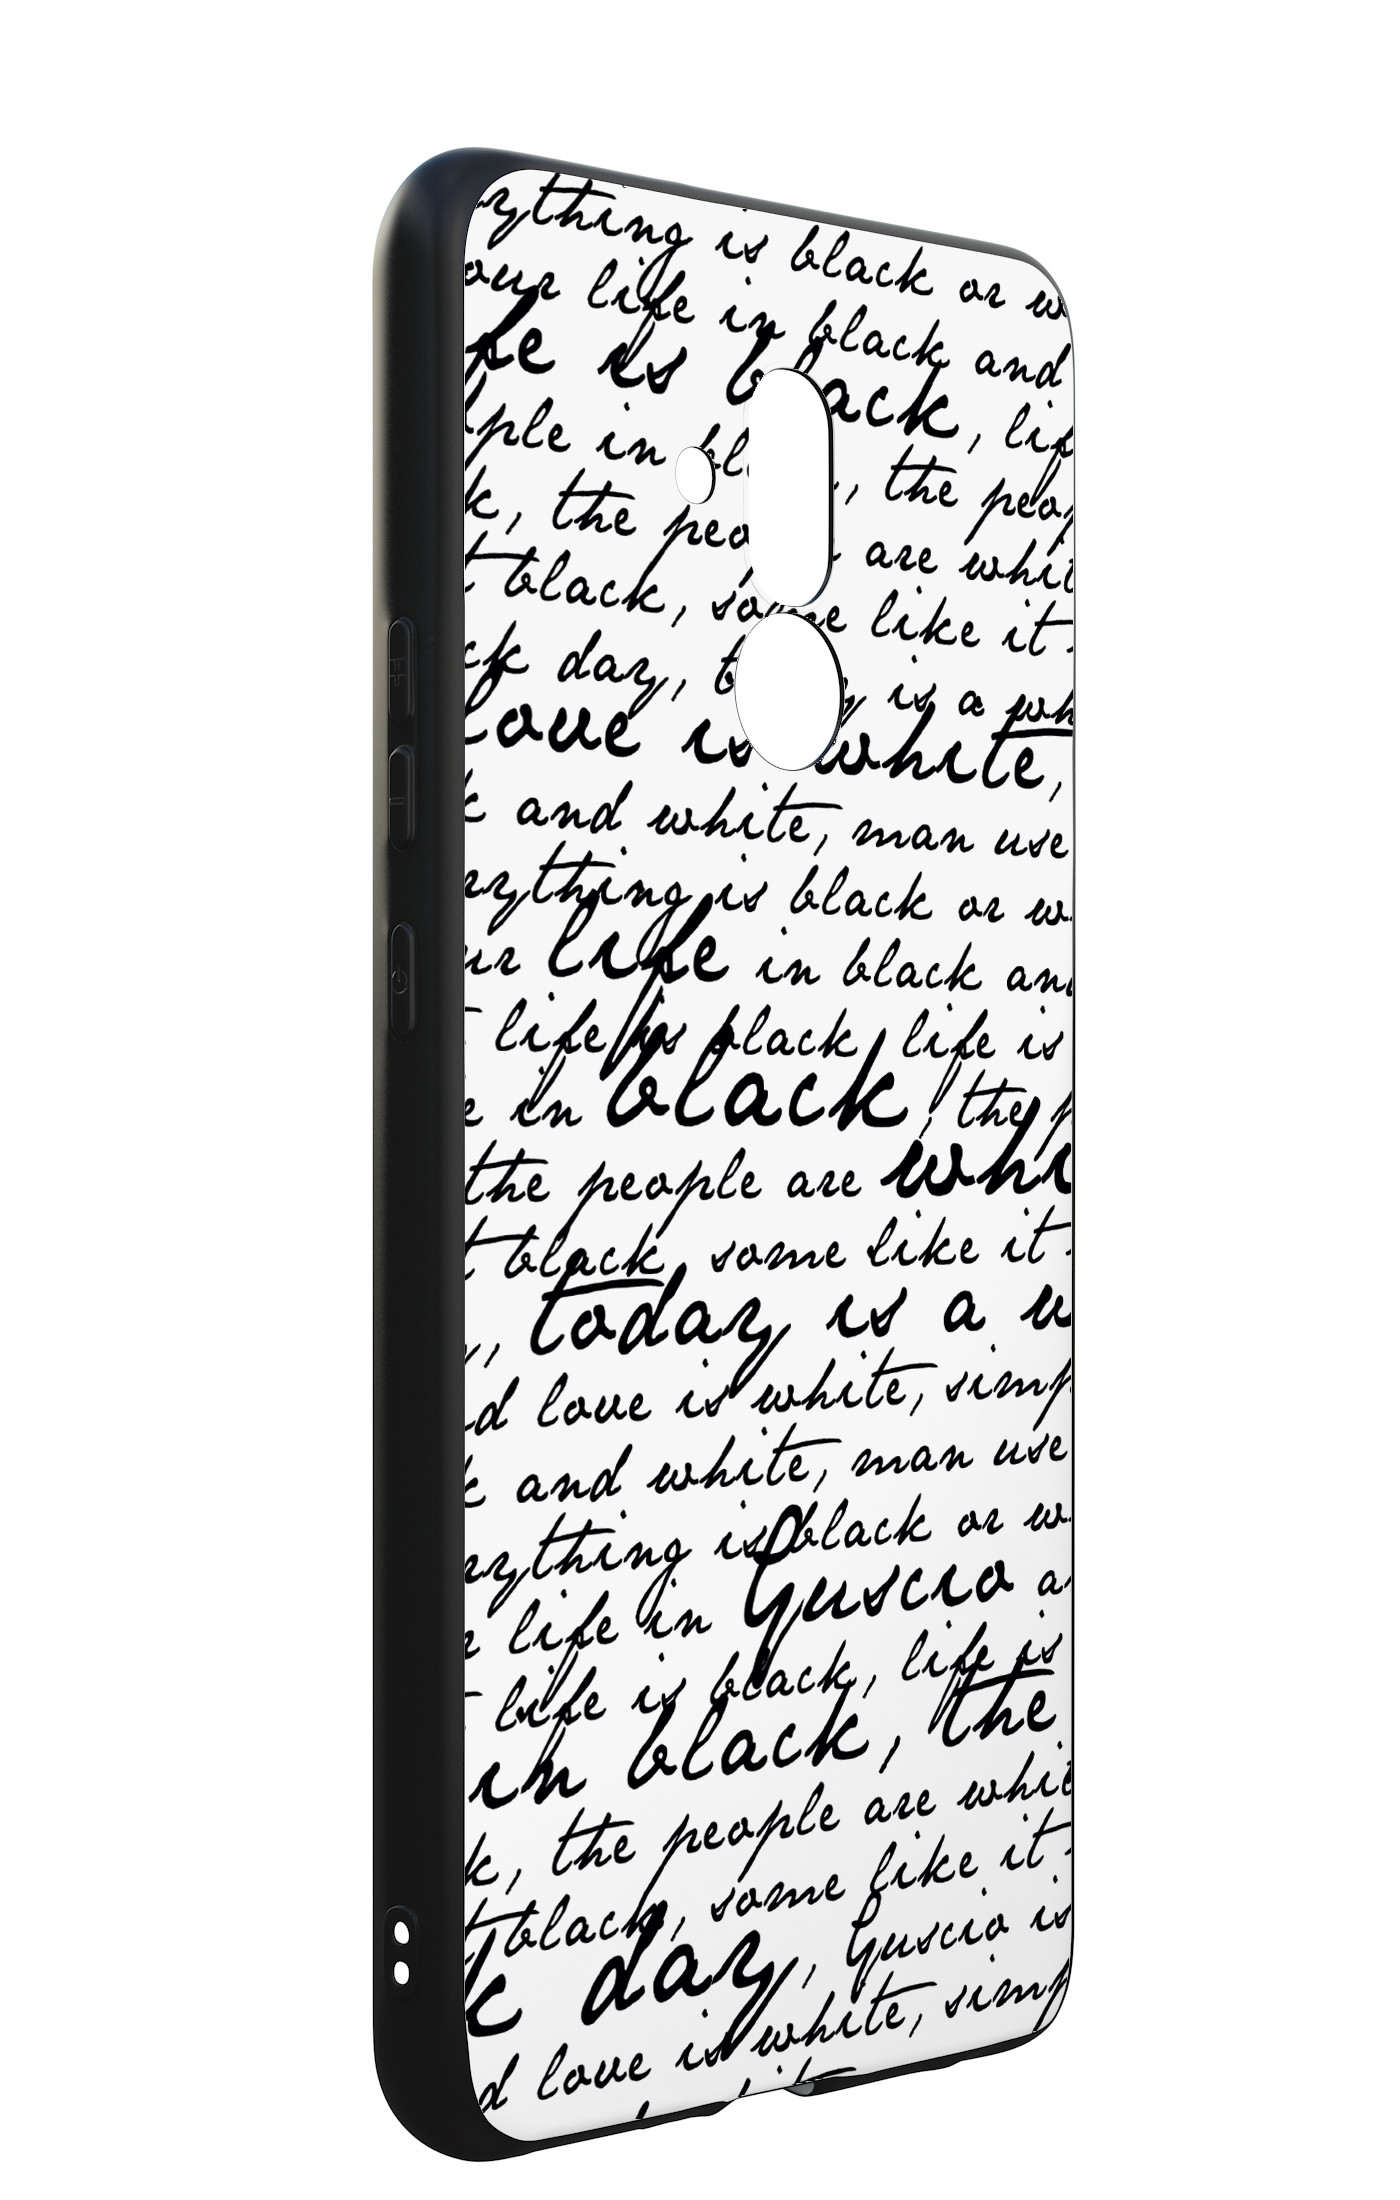 rything is black or w
our life in black and
fe is black, lif
ple in bl , the peop
k, the peo are whit
t black, some like it
ck day, t y is a wh
love is white,
k and white, man use
rything is black or w
ur life in black and
life is black, life is
e in black, the p
the people are whi
t black, some like it
y, today is a w
d love is white, simp
k and white, man use
rything is black or w
r life in Guscio a
life is black, life is
in black, the
k, the people are whit
t black, some like it
k day, Guscio is
d love is white, simp